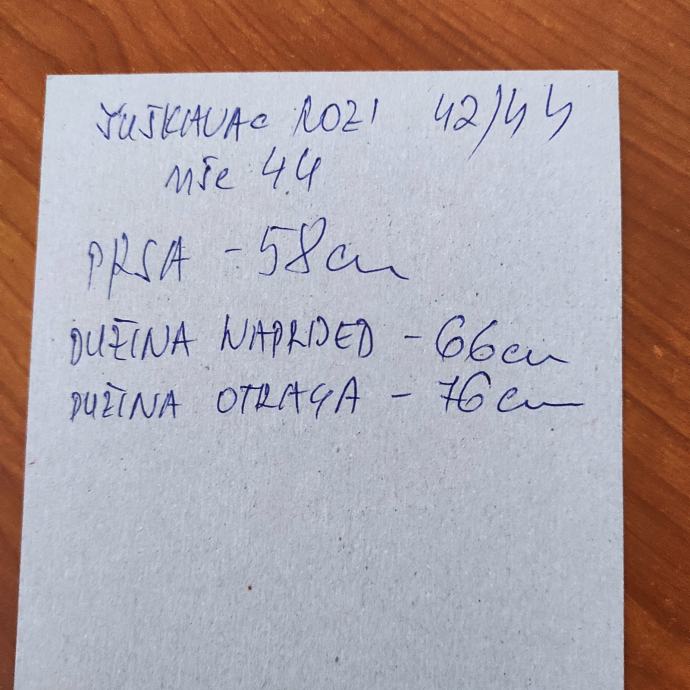 ŠUŠKAVAC ROZI 42/44
više 44
PRSA - 58cm
DUŽINA NAPRIJED - 66cm
DUŽINA OTRAGA - 76cm